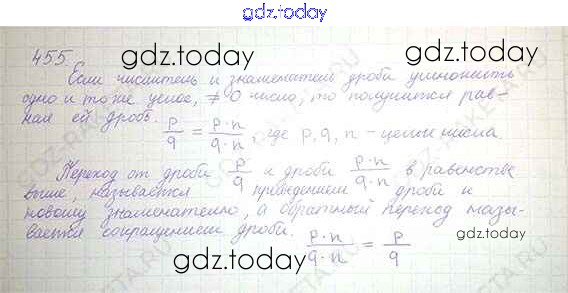 gdz.today
455
gdz.today gdz.today
Если числитель и знаменатель дроби умножить
одно и то же целое, ≠ 0 число, то получится рав-
ная ей дробь. p/q = p·n/q·n где p, q, n - целые числа.
Переход от дроби p/q к дроби p·n/q·n в равенстве
выше, называется приведением дроби к
новому знаменателю, а обратный переход назы-
вается сокращением дроби. p·n/q·n = p/q
gdz.today
gdz.today